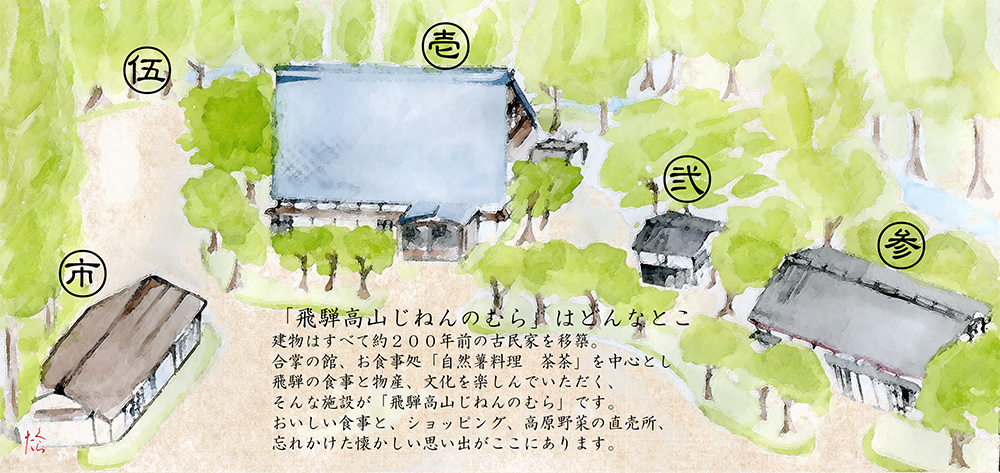 壱
伍
弐
参
市
「飛騨高山じねんのむら」はどんなとこ
建物はすべて約２００年前の古民家を移築。
合掌の館、お食事処「自然薯料理　茶茶」を中心とし
飛騨の食事と物産、文化を楽しんでいただく、
そんな施設が「飛騨高山じねんのむら」です。
おいしい食事と、ショッピング、高原野菜の直売所、
忘れかけた懐かしい思い出がここにあります。